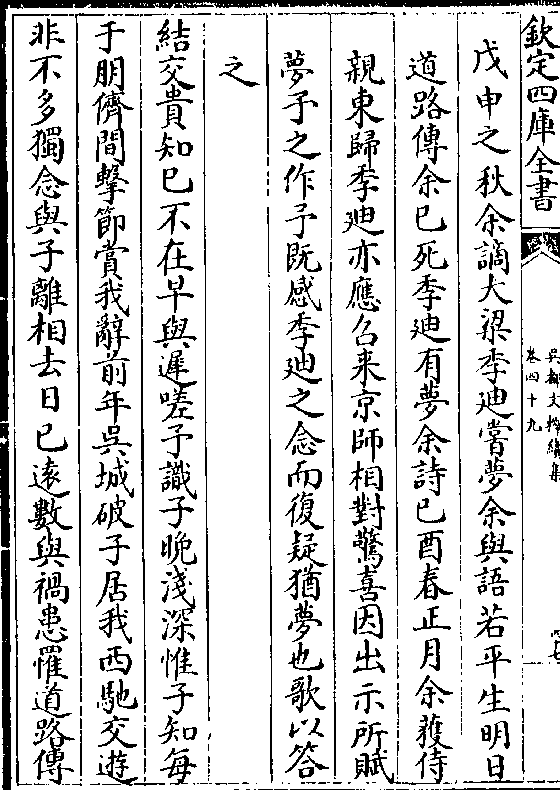 欽定四庫全書
吳都文粹續集
卷四十九
戊申之秋余謫大梁季迪嘗夢余與語若平生明日
道路傳余已死季迪有夢余詩已酉春正月余獲侍
親東歸季迪亦應召来京師相對驚喜因出示所賦
夢予之作予既感季迪之念而復疑猶夢也歌以答
之
結交貴知已不在早與遲嗟予識子晚淺深惟子知每
于朋儕間擊節賞我辭前年吳城破子居我西馳交遊
非不多獨念與子離相去日已遠數與禍患罹道路傳